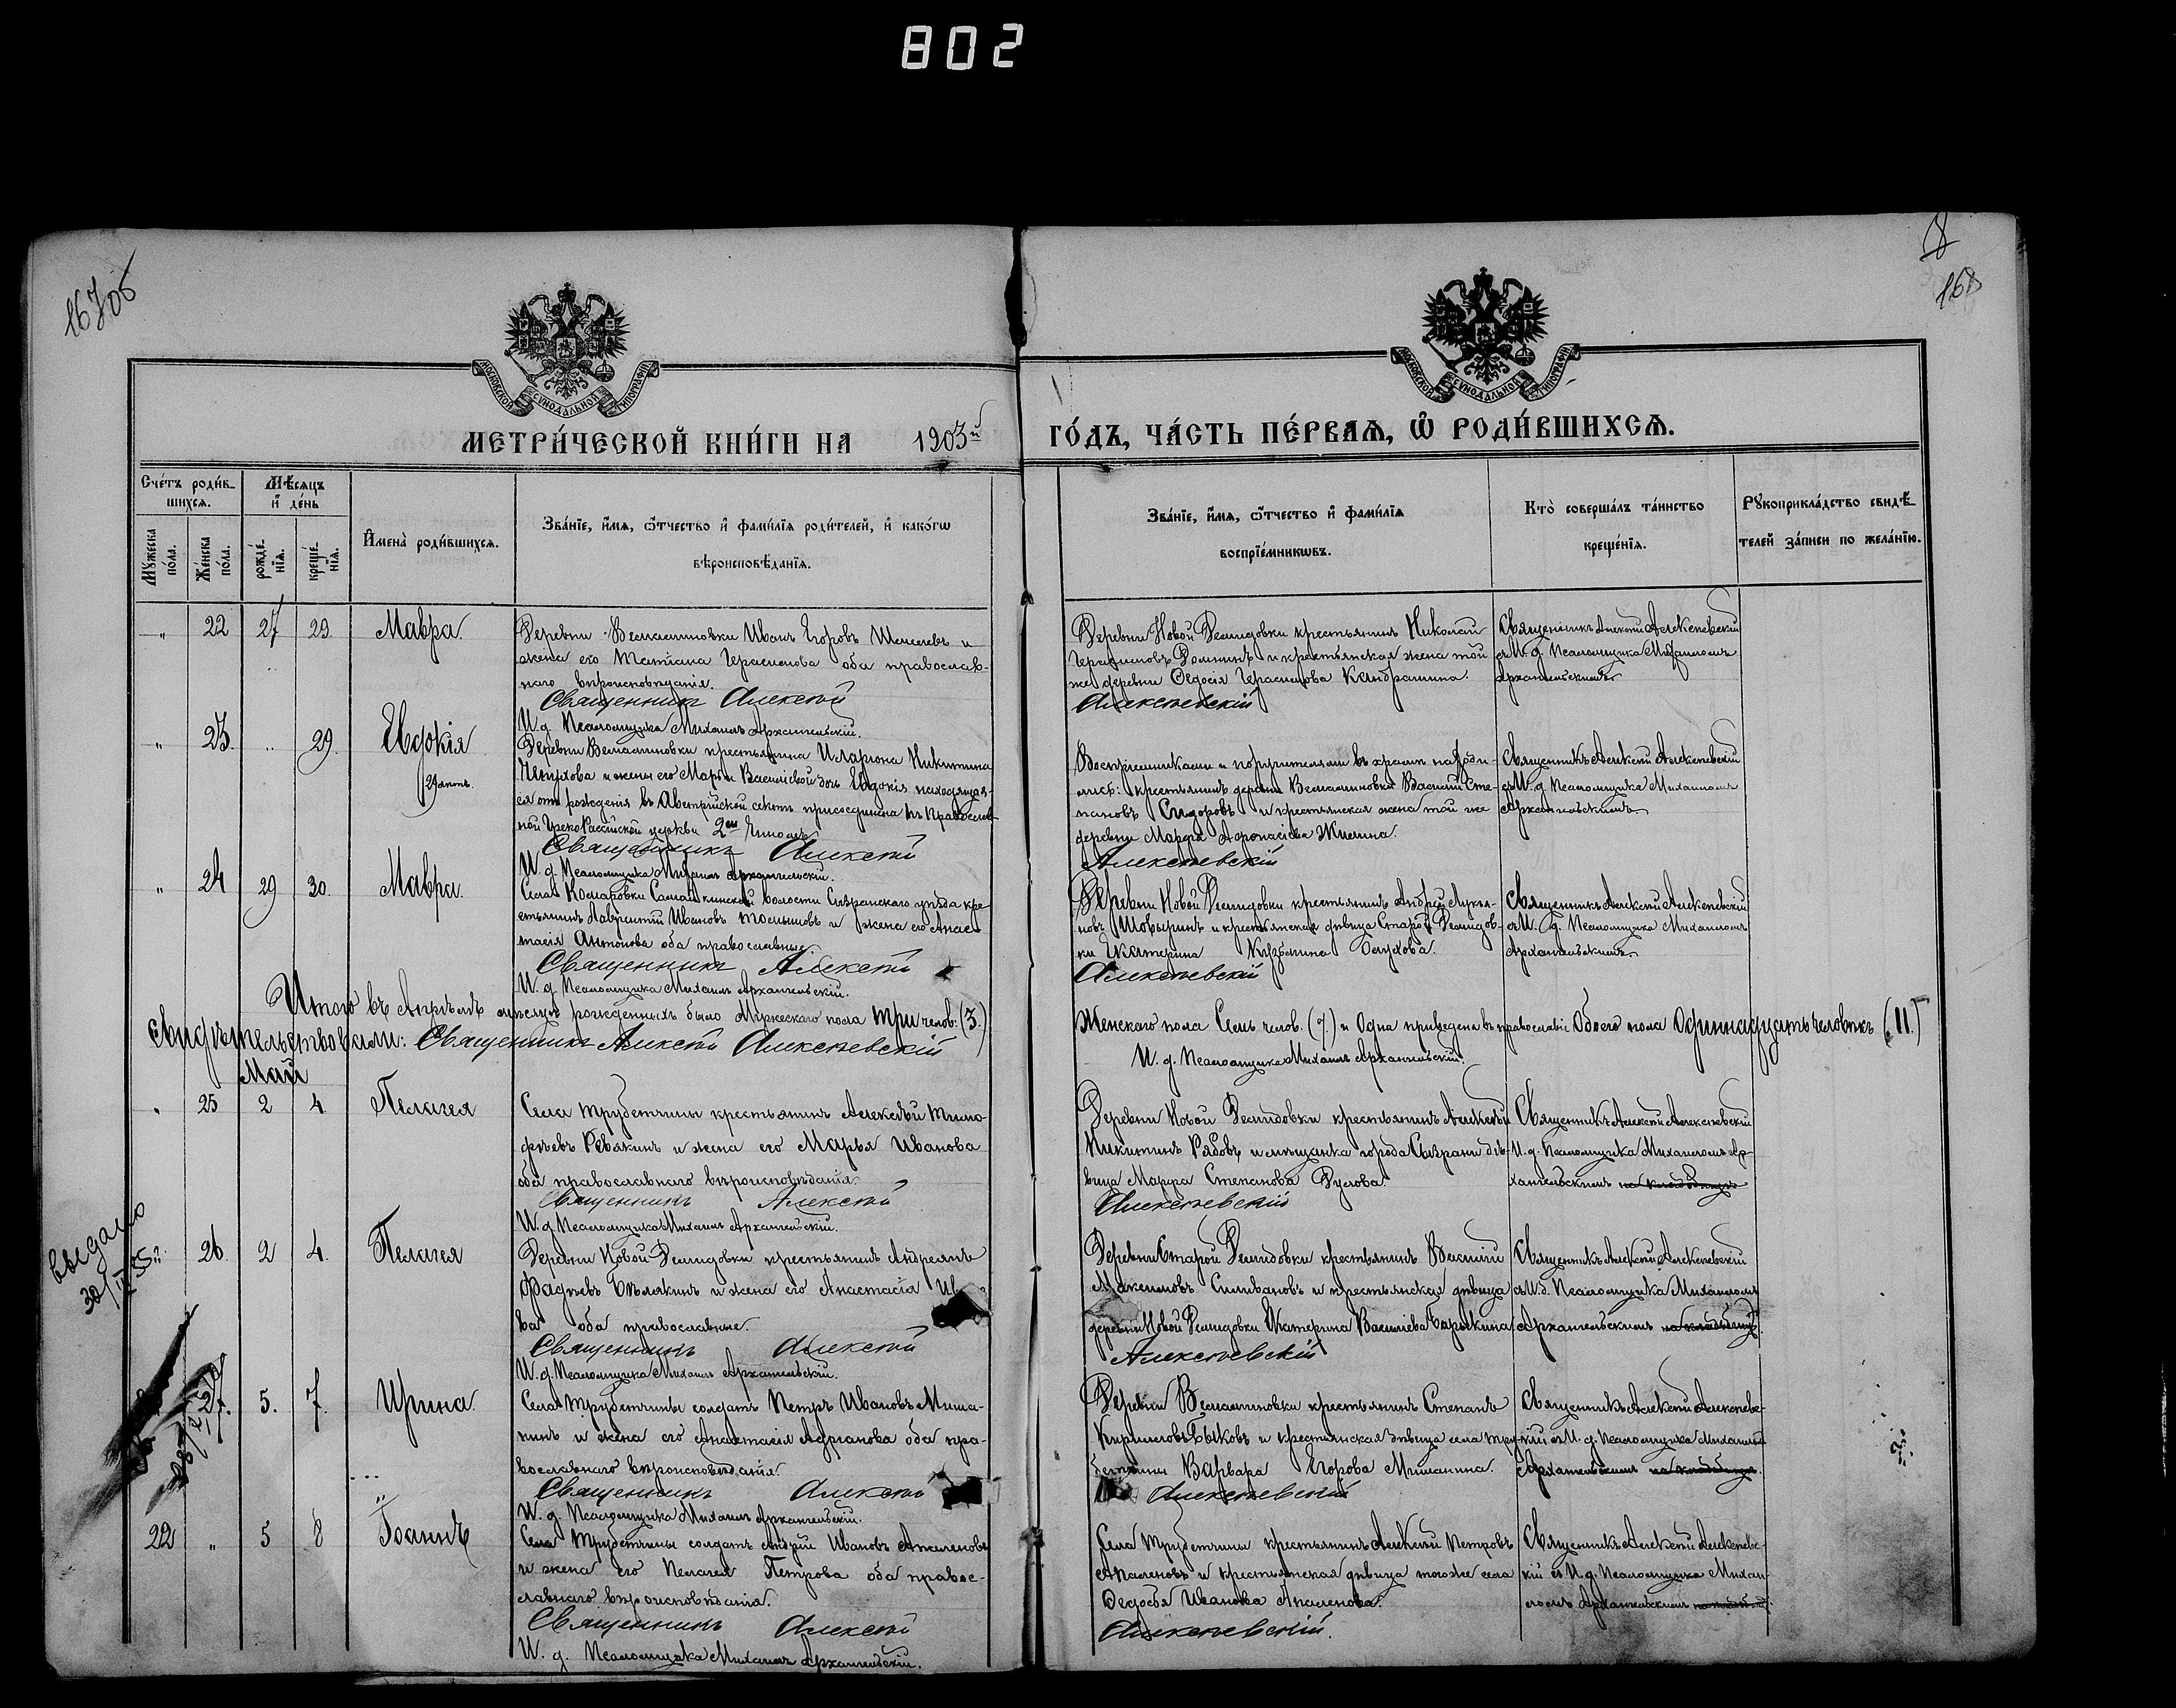 802
167об
8
168
МОСКОВСКОЙ СУНОДАЛЬНОЙ ТИПОГРАФІИ
МОСКОВСКОЙ СУНОДАЛЬНОЙ ТИПОГРАФІИ
МЕТРИ́ЧЕСКОЙ КНИ́ГИ НА 1903й ГО́ДЪ, ЧА́СТЬ ПЕ́РВАѦ, Ѡ҆ РОДИ́ВШИХСѦ.
Сче́тъ роди́в-
шихсѧ.
Мѣ́сѧцъ
и҆ де́нь
Мꙋ́жеска по́ла.
Же́нска по́ла.
рожде́-нїѧ.
креще́-нїѧ.
И҆мена̀ роди́вшихсѧ.
Зва́нїе, и҆́мѧ, ѻ҆́тчество и҆ фами́лїѧ роди́телей, и҆ како́гѡ
вѣроисповѣ́данїѧ.
Зва́нїе, и҆́мѧ, ѻ҆́тчество и҆ фами́лїѧ
воспрїе́мникѡвъ.
Кто̀ соверша́лъ та́инство
креще́нїѧ.
Рꙋкоприкла́дство свидѣ́-
телей за́писи по жела́нїю.
" 22 27 29 Мавра.
Деревни Иванъ Егоровъ и
жена его Татіана Герасимова оба православ-
наго вѣроисповѣданія.
Священникъ Алексѣй
И. д. Псаломщика Михаилъ Архангельскій.
Деревни Новой Демидовки крестьянинъ Николай
Герасимовъ и крестьянская жена той
же деревни Ѳедосія Герасимова
Алексѣевскій
Священникъ Алексѣй Алексѣевскій
съ И. д. Псаломщика Михаиломъ
Архангельскимъ.
" 23. " 29. Евдокія
29 лѣтъ.
Деревни крестьянина Иларіона Никитина
и жены его Маріи дочь Евдокія находящая-
ся отъ рожденія въ Австрійской сектѣ присоединена къ Православ-
ной ГрекоРоссійской церкви 2мъ Чиномъ
Священникъ Алексѣй
И. д. Псаломщика Михаилъ Архангельскій.
Воспріемниками и поручителями въ храмѣ находи-
лись: крестьянинъ деревни Василій Сте-
пановъ Сидоровъ и крестьянская жена той же
деревни Марѳа Аѳонасіева Жилина.
Алексѣевскій
Священникъ Алексѣй Алексѣевскій
съ И. д. Псаломщика Михаиломъ
Архангельскимъ.
" 24 29 30. Мавра.
Села Комаровки волости Сызранскаго уѣзда кре-
стьянинъ Лаврентій Ивановъ и жена его Анас-
тасія Антонова оба православные.
Священникъ Алексѣй
И. д. Псаломщика Михаилъ Архангельскій.
Деревни Новой Демидовки крестьянинъ Андрей Лукья-
новъ и крестьянская дѣвица Старой Демидов-
ки Екатерина Кузьмина
Алексѣевскій
Священникъ Алексѣй Алексѣевскій
съ И. д. Псаломщика Михаиломъ
Архангельскимъ.
Итого въ Апрѣлѣ мѣсяцѣ рожденныхъ было Мужескаго пола Три челов: (3.)
Женскаго пола Семь челов. (7.) и Одна приведена въ православіе Обоего пола Одиннадцать человѣкъ (11.)
Свидѣтельствовали: Священникъ Алексѣй Алексѣевскій
И. д. Псаломщика Михаилъ Архангельскій.
Май
" 25 2 4 Пелагея
Села Трубетчины крестьянинъ Алексѣй Тимо-
ѳѣевъ Ревякинъ и жена его Марья Иванова
оба православнаго вѣроисповѣданія.
Священникъ Алексѣй
И. д. Псаломщика Михаилъ Архангельскій.
Деревни Новой Демидовки крестьянинъ Алексѣй
Никитинъ Рябовъ и мѣщанка города Сызрани дѣ-
вица Марѳа Степанова
Алексѣевскій
Священникъ Алексѣй Алексѣевскій
И. д. Псаломщика Михаиломъ Ар-
хангельскимъ
выдано
30/IV 35
" 26. 2 4. Пелагея
Деревни Новой Демидовки крестьянинъ Андреянъ
Ѳадѣевъ Бѣлякинъ и жена его Анастасія
ва оба православные.
Священникъ Алексѣй
И. д. Псаломщика Михаилъ Архангельскій.
Деревни Старой Демидовки крестьянинъ Василій
Максимовъ Селивановъ и крестьянская дѣвица
деревни Новой Демидовки Екатерина Василіева
Алексѣевскій
Священникъ Алексѣй Алексѣевскій
съ И. д. Псаломщика Михаиломъ
Архангельскимъ на кладбищѣ.
27. 5. 7. Ирина.
Села Трубетчины солдатъ Петръ Ивановъ Миша-
нинъ и жена его Анастасія Адріанова оба пра-
вославнаго вѣроисповѣданія.
Священникъ Алексѣй
И. д. Псаломщика Михаилъ Архангельскій.
Деревни крестьянинъ Степанъ
Кириловъ Быковъ и крестьянская дѣвица села Тру-
бетчины Варвара Егорова Мишанина.
Алексѣевскій
Священникъ Алексѣй Алексѣевс-
кій съ И. д. Псаломщика Михаиломъ
Архангельскимъ на кладбищѣ.
22 " 5 8 Іоаннъ
Села Трубетчины солдатъ Андрей Ивановъ Апаленовъ
и жена его Пелагея Петрова оба правос-
лавнаго вѣроисповѣданія.
Священникъ Алексѣй
И. д. Псаломщика Михаилъ Архангельскій.
Села Трубетчины крестьянинъ Алексѣй Петровъ
Апаленовъ и крестьянская дѣвица того же села
Ѳедосья Иванова Апаленова.
Алексѣевскій.
Священникъ Алексѣй Алексѣевс-
кій съ И. д. Псаломщика Михаи-
ломъ Архангельскимъ